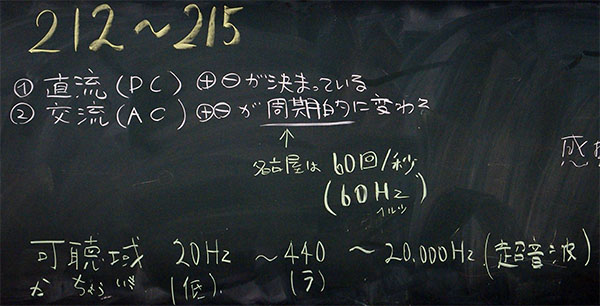 212〜215
① 直流(DC) ⊕⊖が決まっている
② 交流(AC) ⊕⊖が周期的に変わる
↑
名古屋は 60回/秒
(60Hz)
ヘルツ
感
可聴域 20Hz 〜440 〜20,000Hz(超音波)
か ちょう いき (低) (ラ)